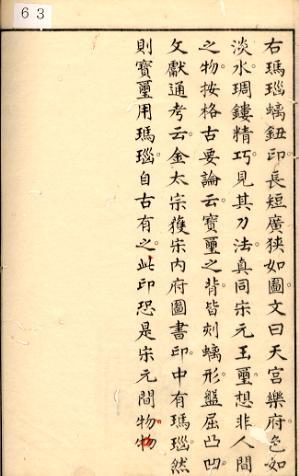 63
右瑪瑙螭鈕印長短廣狹如圖文曰天宮樂府色如
淡水琱鏤精巧見其刀法真同宋元玉璽想非人間
之物按格古要論云寶璽之背皆刻螭形盤屈凸凹
文獻通考云金太宗獲宋內府圖書印中有瑪瑙然
則寶璽用瑪瑙自古有之此印恐是宋元間物物